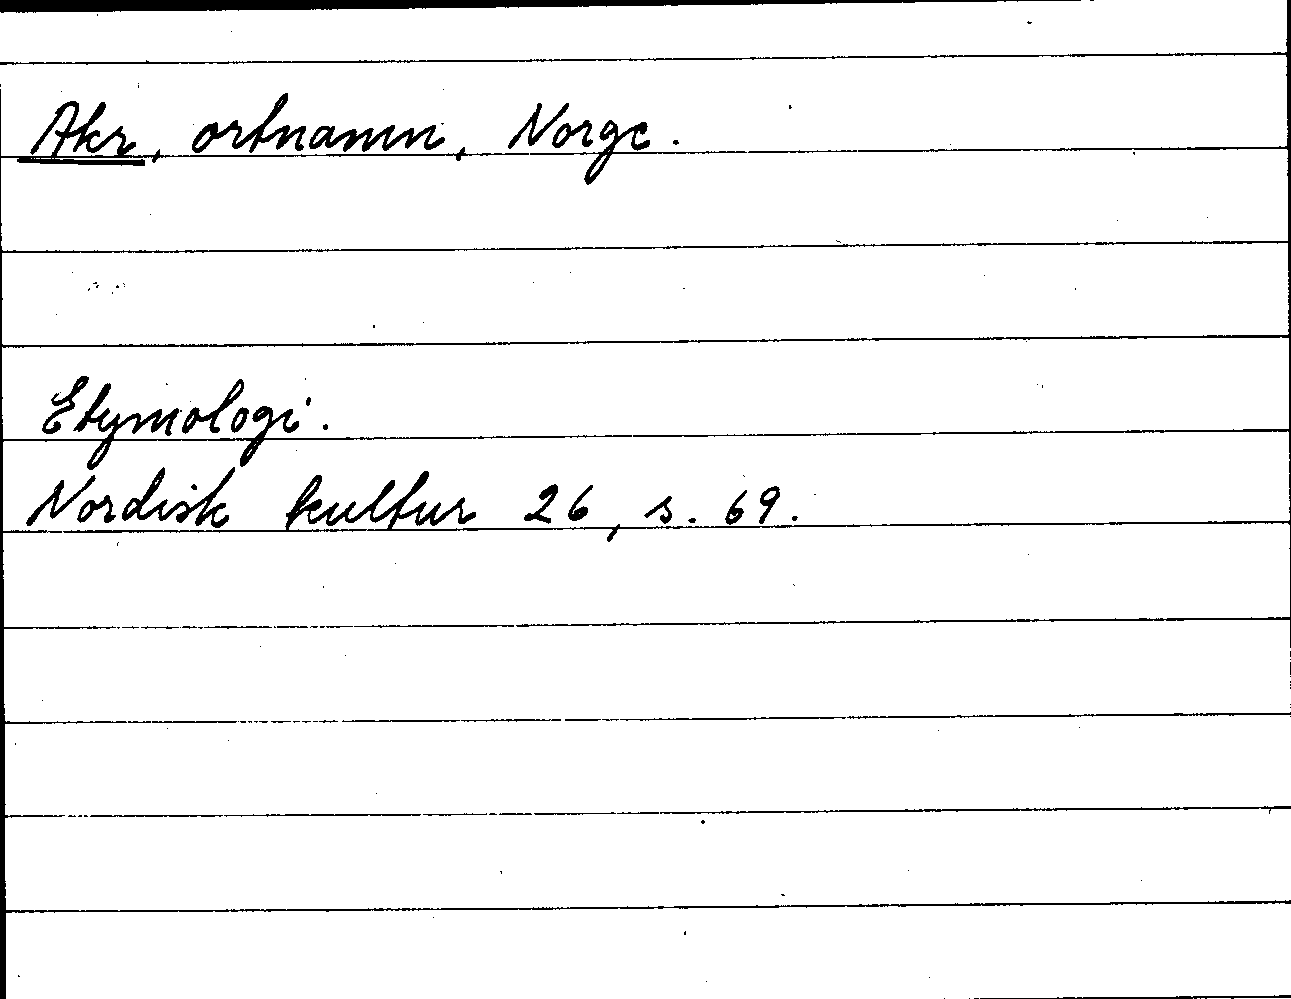 Akr, ortnamn, Norge.
Etymologi.
Nordisk kultur 26, s. 69.